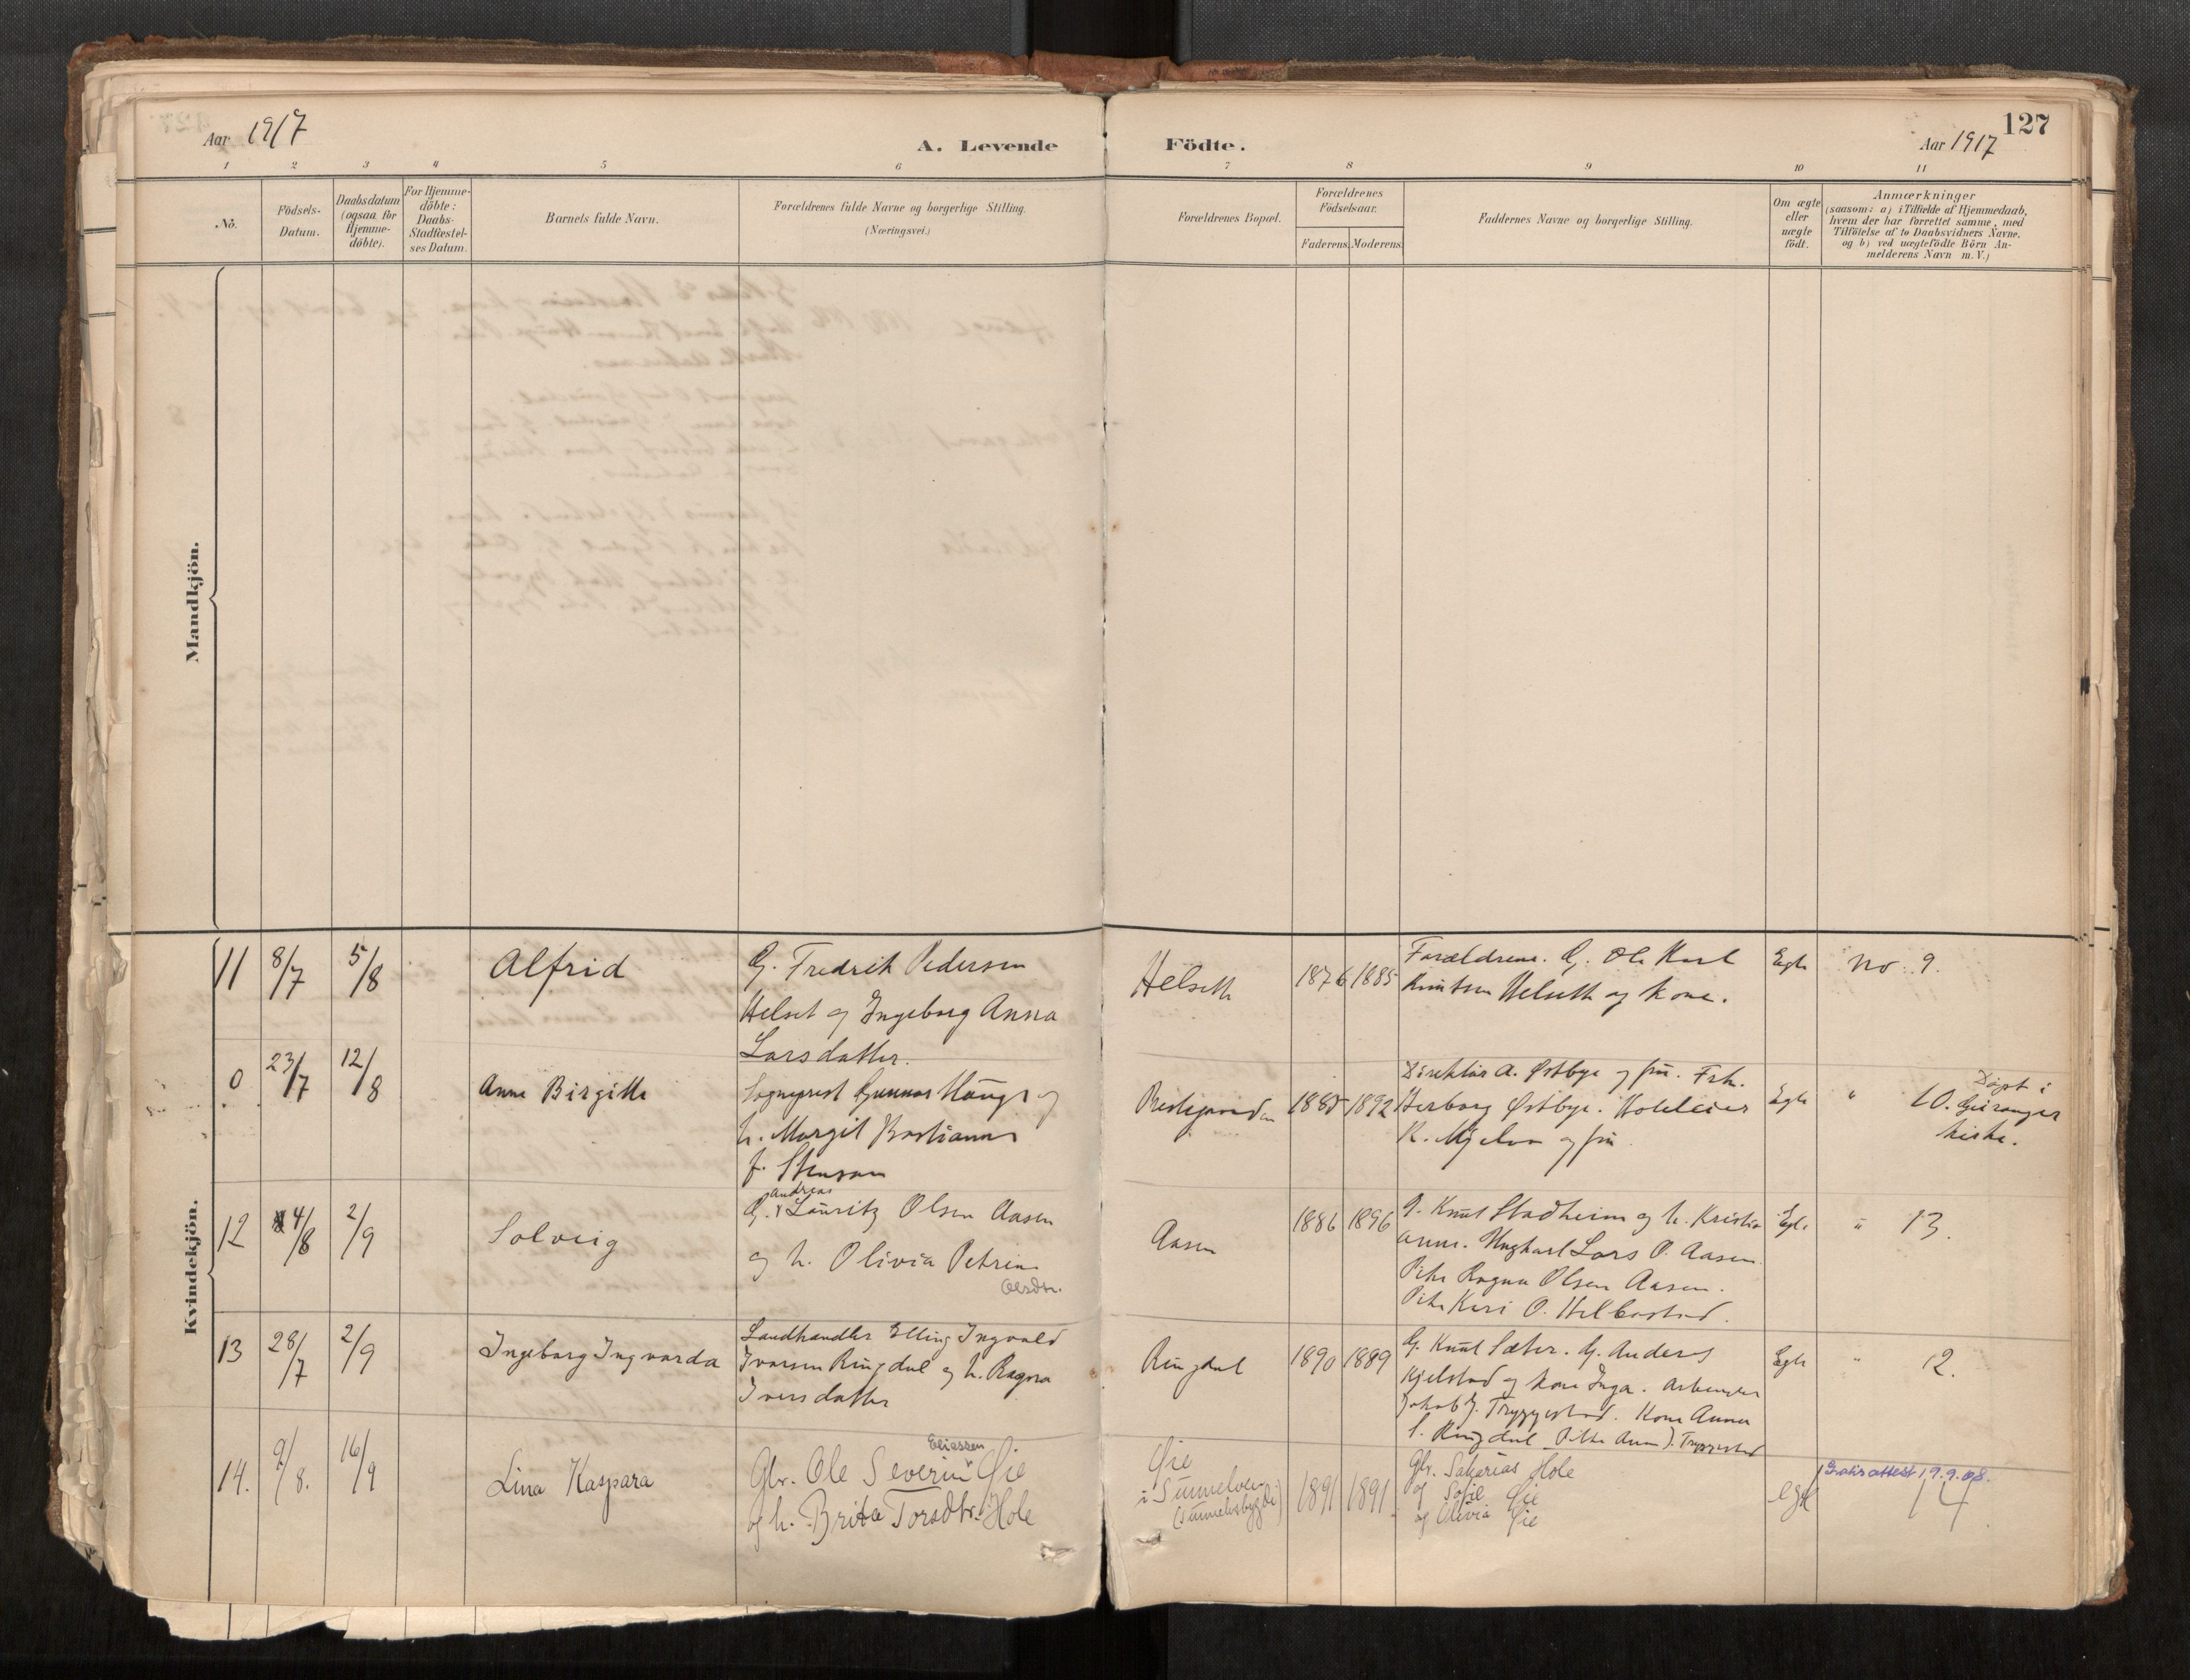 127
Aar 1917
A. Levende
Födte.
Aar 1917
1 2 3 4 5 6 7 8 9 10 11
No.
Födsels-
Datum.
Daabsdatum
(ogsaa for
Hjemme-
döbte).
For Hjemme-
döbte:
Daabs-
Stadfæstel-
ses Datum.
Barnets fulde Navn.
Forældrenes fulde Navne og borgerlige Stilling.
(Næringsvei.)
Forældrenes Bopæl.
Forældrenes
Födselsaar.
Faderens. Moderens.
Faddernes Navne og borgerlige Stilling.
Om ægte
eller
uægte
födt.
Anmærkninger
(saasom: a) i Tilfælde af Hjemmedaab,
hvem der har forrettet samme, med
Tilföielse af to Daabsvidners Navne.
og b) ved uægtefödte Börn An-
melderens Navn m. V.)
Mandkjön.
Kvindekjön.
11
8/7
5/8
Alfrid
G. Fredrik Pedersen
Helset og Ingeborg Anna
Larsdatter.
Helseth
1876 1885
Forældrene. G. Ole Karl
Knutsen Helseth og kone.
Egte
No 9.
0
23/7
12/8
Anne Birgitte
Sogneprest Gunnar Hauge og
h. Margit Bastianne
f. Stenson
Prestegaarden
1885 1892
Direktør A. Østbye og fru. Frk.
Herborg Østbye. Hoteleier
K. Mjelva og fru.
Egte
" 10. Døpt i
Geiranger
kirke.
12
4/8
2/9
Solveig
Andreas
G. Lauritz Olsen Aasen
og h. Olivia Petrine
Olsdtr.
Aasen
1886 1896
G. Knut Stadheim og h. Kristi
Anne. Ungkarl Lars O. Aasen
Pike Ragna Olsen Aasen.
Pike Kari O. Hellbostad.
Egte
" 13.
13
28/7
2/9
Ingeborg Ingvarda
Landhandler Elling Ingvald
Ivarsen Ringdal og h. Ragna
Iversdatter
Ringdal
1890 1889
G. Knut Sæter. G. Anders
Kjelstad og kone Inga. Arbeider
Jakob J. Tryggestad. Kone Anna
S. Ringdal. Pike Anna J. Tryggestad
Egte
" 12.
14.
9/8.
16/9
Lina Kaspara
Eliassen
Gbr. Ole Severin Øie
og h. Brita Torsdtr. Hole
Øie
i Sunnelven
(Sunnelvsbygde)
1891 1891
Gbr. Sakarias Hole
og Sofie Øie
og Olivia Øie
egte
Gratisattest 19.9.68.
14